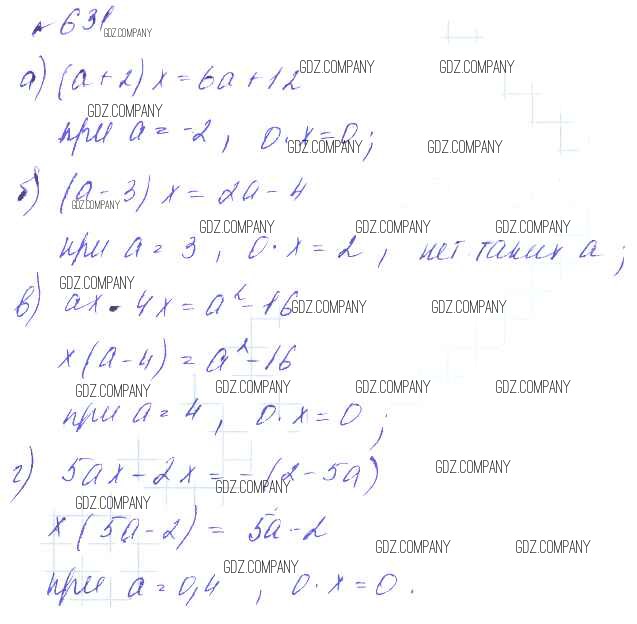 № 631
GDZ.COMPANY
а) (a + 2) x = 6a + 12
GDZ.COMPANY GDZ.COMPANY
GDZ.COMPANY
при a = -2, 0 · x = 0;
GDZ.COMPANY GDZ.COMPANY
б) (a - 3) x = 2a - 4
GDZ.COMPANY
GDZ.COMPANY GDZ.COMPANY GDZ.COMPANY
при a = 3, 0 · x = 2, нет таких a;
GDZ.COMPANY
в) ax - 4x = a² - 16
GDZ.COMPANY GDZ.COMPANY
x (a - 4) = a² - 16
GDZ.COMPANY GDZ.COMPANY GDZ.COMPANY GDZ.COMPANY
при a = 4, 0 · x = 0;
г) 5ax - 2x = - (2 - 5a)
GDZ.COMPANY
GDZ.COMPANY
GDZ.COMPANY
x (5a - 2) = 5a - 2
GDZ.COMPANY GDZ.COMPANY
GDZ.COMPANY
при a = 0,4, 0 · x = 0.